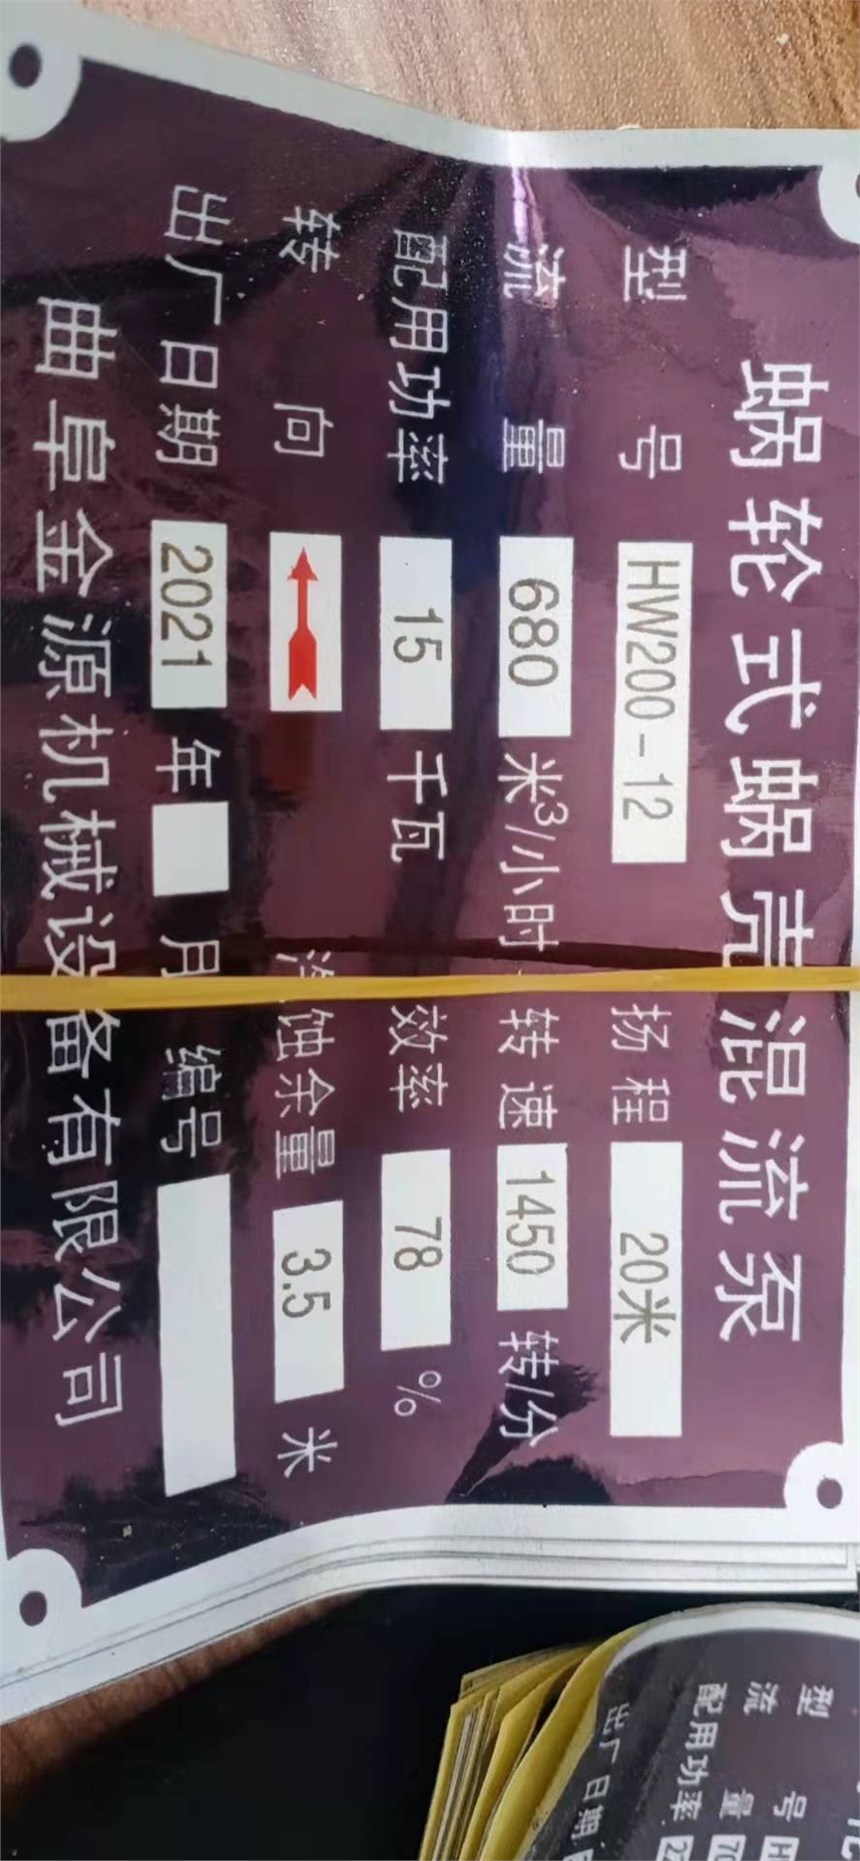 蜗轮式蜗壳混流泵
型号 HW200-12 扬程 20米
流量 680 米³/小时 转速 1450 转/分
配用功率 15 千瓦 效率 78 %
转向 汽蚀余量 3.5 米
出厂日期 2021 年 月 编号
曲阜金源机械设备有限公司
型号 H
流量 70
配用功率 22
出厂日期